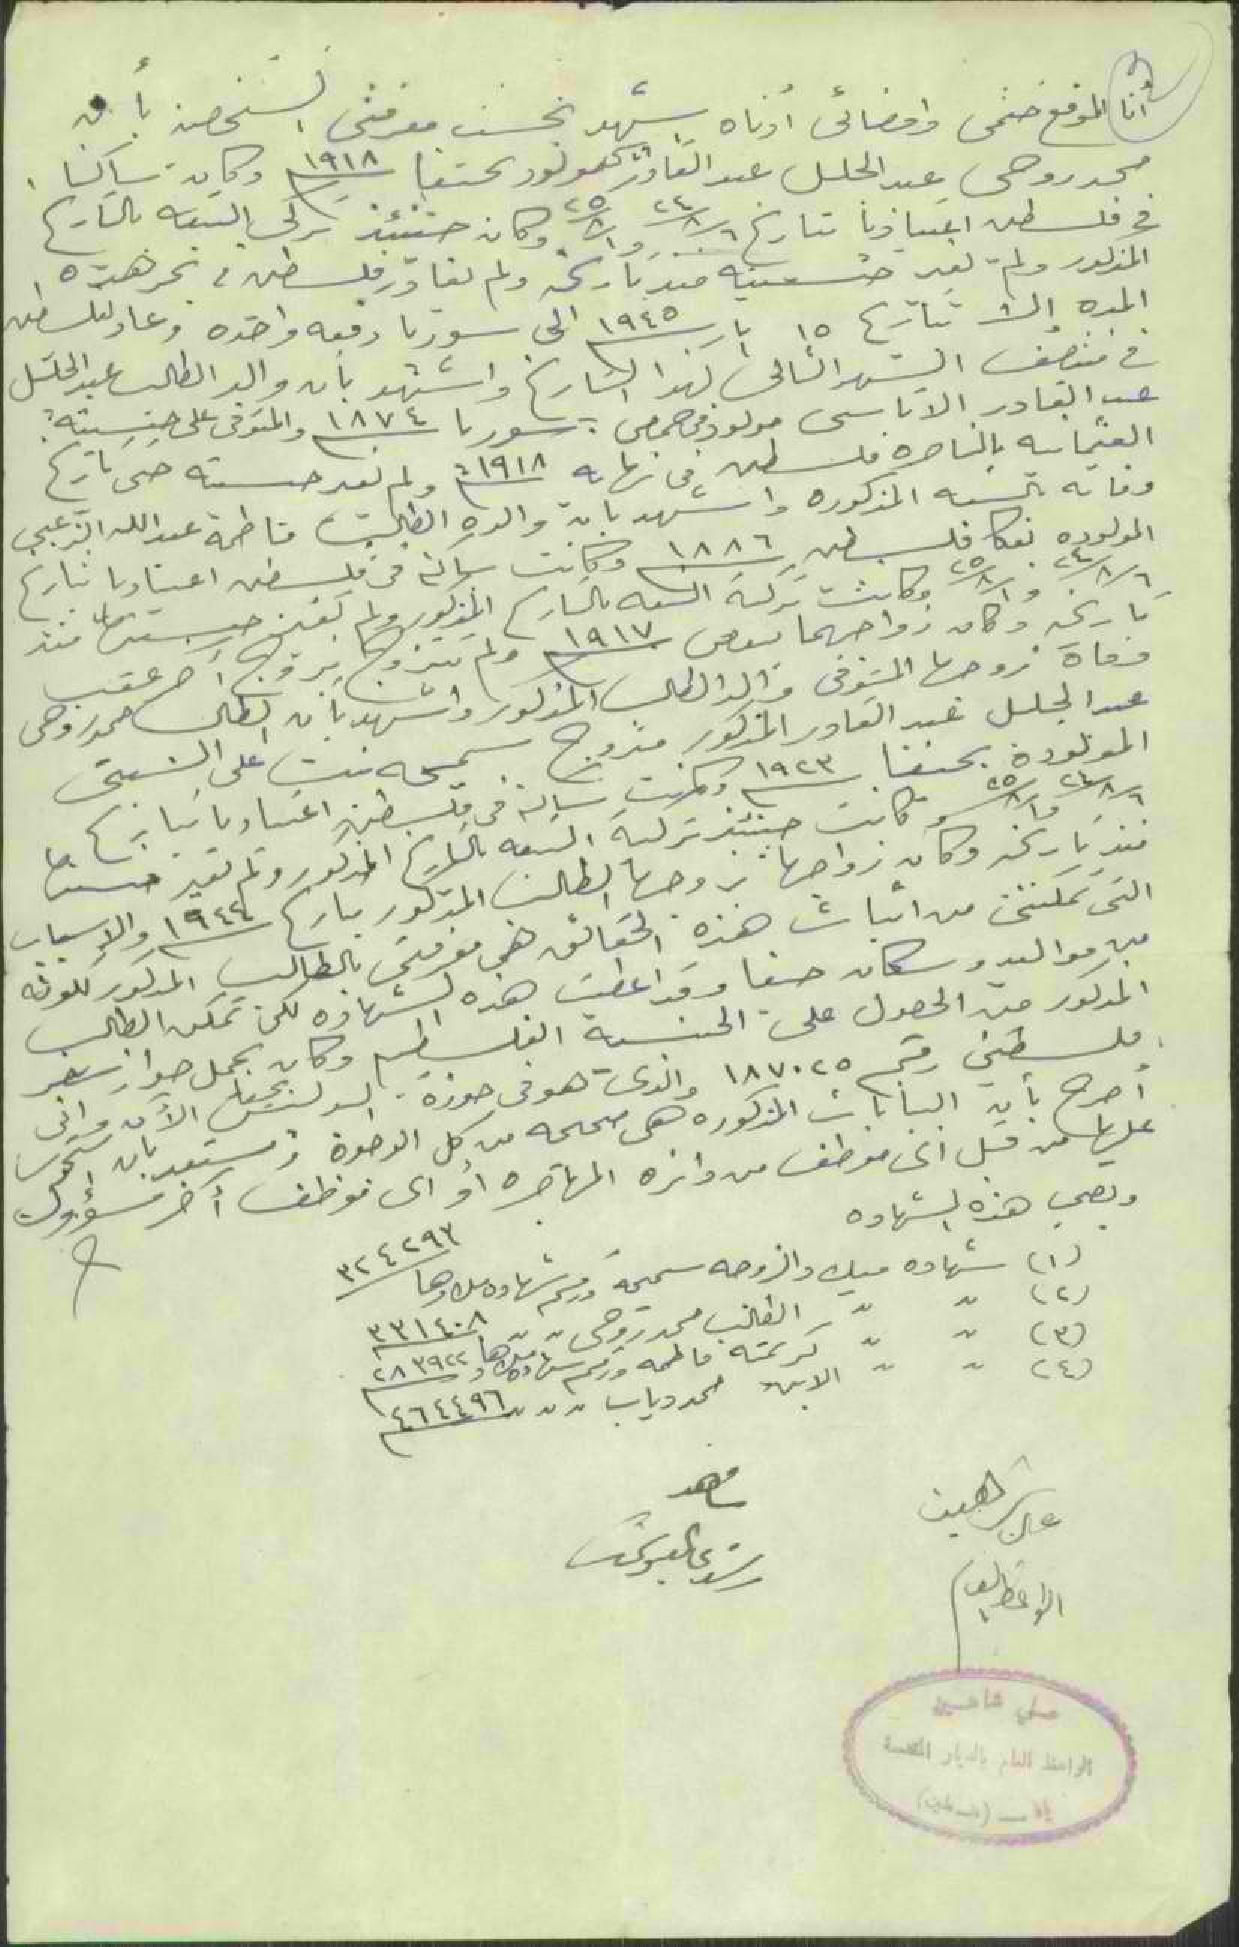 أنا الموقع ختمي وامضائي أدناه أشهد بحسب معرفتي الشخصية بأن
محمد روحي عبد الجليل عبد القادر كمولود بحيفا ١٩١٨ وكان ساكنا
في فلسطين اعتياديا بتاريخ ٦/٨/٢٤ و ١/٨/٢٥ وكان حينئذ تركي التبعه بالتاريخ
المذكور ولم تغير جنسيته منذ تاريخه ولم يغادر فلسطين في بحر هذه
المده إلا بتاريخ ١٥ ١٩٤٥ الى سوريا دفعه واحده وعاد لفلسطين
في منتصف الشهر التالي لهذا التاريخ واشهد بأن والد الطالب عبد الجليل
عبد القادر الاتاسي مولود في حمص : سوريا ١٨٧٤ والمتوفى على جنسيته
العثمانيه بالناصره فلسطين في نهاية ١٩١٨ ولم تغير جنسيته حتى تاريخ
وفاته بالسنه المذكوره واشهد بان والدة الطالب فاطمة عبد الله الزعبي
المولوده بعكا فلسطين ١٨٨٦ وكانت ساكنه في فلسطين اعتياديا بتاريخ
٦/٨/٢٤ و ١/٨/٢٥ وكانت تركية التبعه بالتاريخ المذكور ولم تغير جنسيتها منذ
تاريخه وكان زواجهما ١٩١٧ ولم تتزوج بزوج آخر عقب
وفاة زوجها المتوفى والد الطالب المذكور واشهد بأن الطالب محمد روحي
عبد الجليل عبد القادر المذكور متزوج سميحه بنت علي
المولودة بحيفا ١٩٢٣ وكانت ساكنة في فلسطين اعتياديا بتاريخ
٦/٨/٢٤ و ١/٨/٢٥ وكانت حينئذ تركية التبعه بالتاريخ المذكور ولم تغير جنسيتها
منذ تاريخه وكان زواجها بزوجها الطالب المذكور بتاريخ ١٩٤٤ والاسباب
التي تمكنني من اثبات هذه الحقائق هي معرفتي بالطالب المذكور لكونه
من مواليد وسكان حيفا وقد اعطيت هذه الشهاده لكي تمكن الطالب
المذكور من الحصول على الجنسية الفلسطينيه وكان يحمل جواز سفر
فلسطيني رقم ١٨٧٠٢٥ والذي هو في حوزة البوليس بحيفا الآن وإني
أصرح بأن البيانات المذكوره هي صحيحه من كل الوجوة ومستعد بأن
عليها من قبل أي موظف من دائرة المهاجره أو اي موظف آخر مسؤول
وبصحبة هذه الشهاده
(١) شهاده ميلاد الزوجه سميحه ورقم شهادة ميلادها ٣٢٤٢٩٣
(٢) " " الطالب محمد روحي " " ٣٣١٤٠٨
(٣) " " كريمته فاطمه ورقم شهادة ميلادها ٢٨٣٩٢٢
(٤) " " الابن محمد دياب " " " ٤٦٤٤٩٦
علي شاهين
شاهد
الواعظ العام
علي شاهين
الواعظ العام بالديار المقدسة
يافا - (فلسطين)